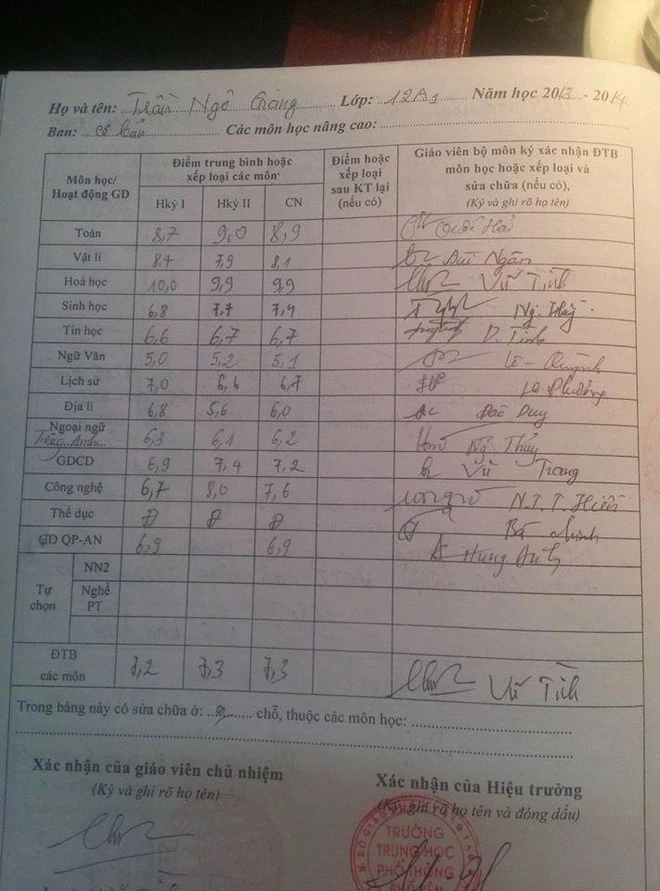 Họ và tên: Trần Ngô Giàng Lớp: 12A1 Năm học 2013 - 2014
Ban: Các môn học nâng cao:
Môn học/ Hoạt động GD
Điểm trung bình hoặc xếp loại các môn
Điểm hoặc xếp loại sau KT lại (nếu có)
Giáo viên bộ môn ký xác nhận ĐTB môn học hoặc xếp loại và sửa chữa (nếu có),
(Ký và ghi rõ họ tên)
Hkỳ I Hkỳ II CN
Toán 8,7 9,0 8,9 Quốc Hải
Vật lí 8,4 7,9 8,1 Bùi Ngân
Hoá học 10,0 9,9 9,9 Vũ Tình
Sinh học 6,8 7,7 7,4 Ng. Thuỷ
Tin học 6,6 6,7 6,7
Ngữ Văn 5,0 5,2 5,1 Lê Quỳnh
Lịch sử 7,0 6,6 6,7 Lê Phương
Địa lí 6,8 5,6 6,0 Đào Duy
Ngoại ngữ Tiếng Anh 6,3 6,1 6,2 Ng Thủy
GDCD 6,9 7,4 7,2 Vũ Trang
Công nghệ 6,7 8,0 7,6 N.T.T. Hiền
Thể dục Đ Đ Đ Bá
GD QP-AN 6,9 6,9 Hùng Anh
Tự chọn
NN2
Nghề PT
ĐTB các môn 7,2 7,3 7,3 Vũ Tình
Trong bảng này có sửa chữa ở: chỗ, thuộc các môn học:
Xác nhận của giáo viên chủ nhiệm
(Ký và ghi rõ họ tên)
Xác nhận của Hiệu trưởng
(Ký, ghi rõ họ tên và đóng dấu)
TRƯỜNG
TRUNG HỌC
PHỔ THÔNG